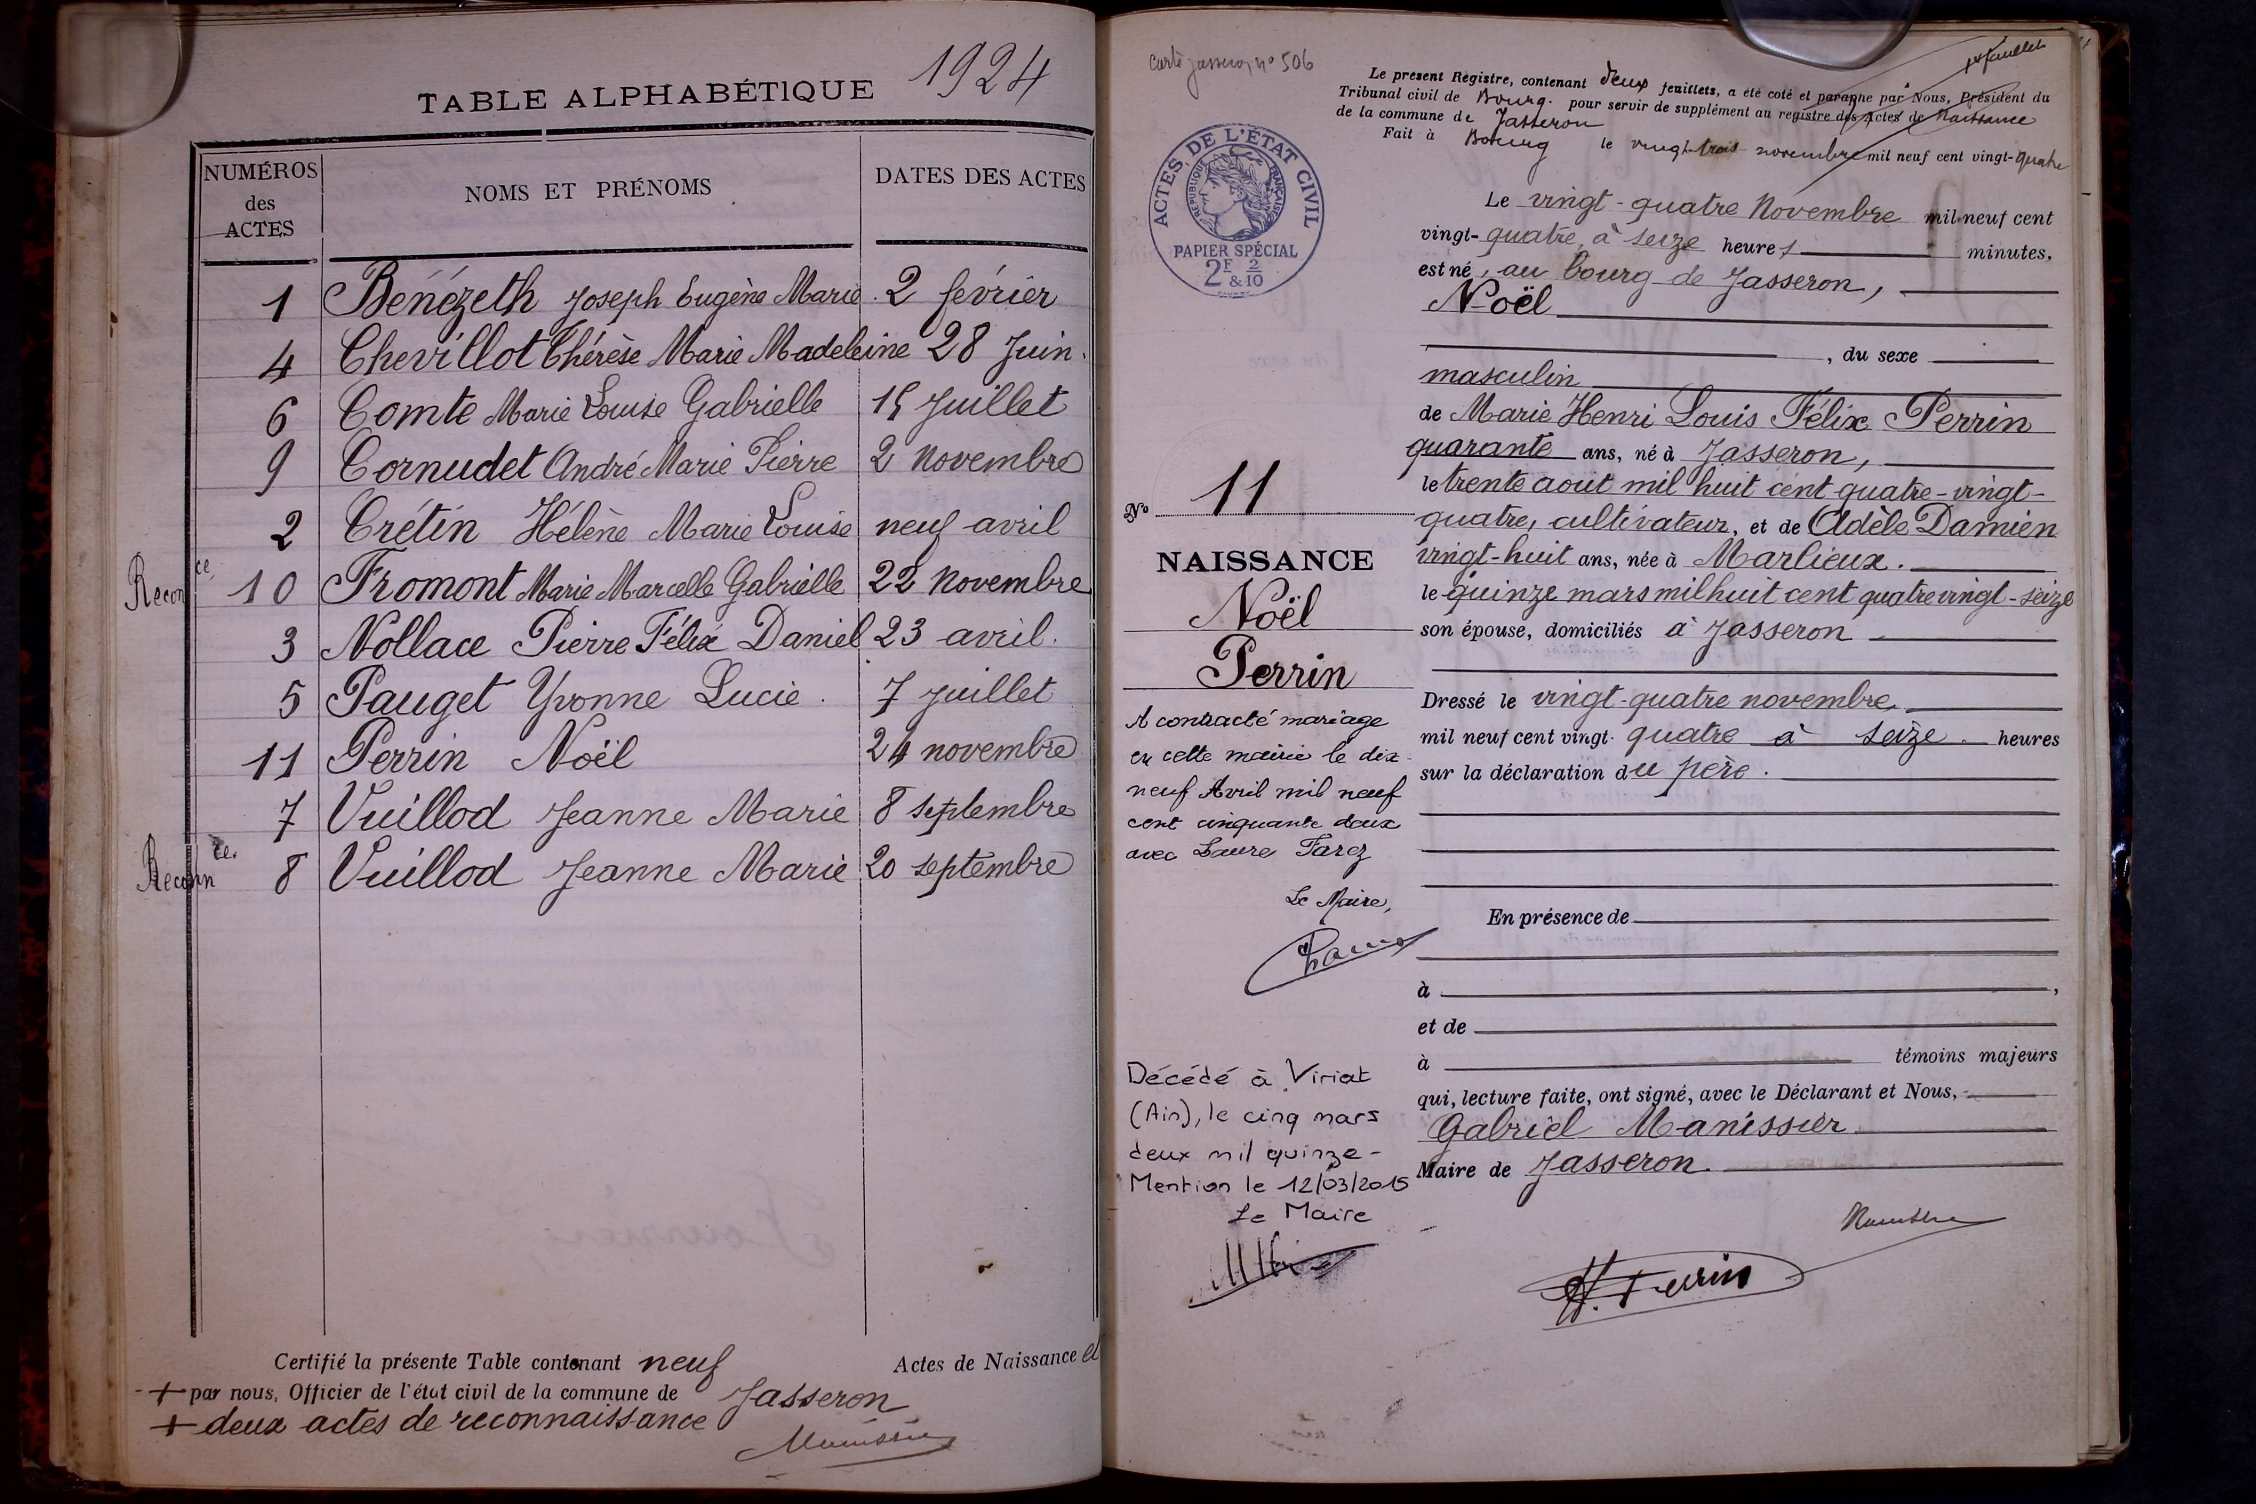 1924
TABLE ALPHABÉTIQUE
NUMÉROS des ACTES
NOMS ET PRÉNOMS
DATES DES ACTES
1 Bénézeth Joseph Eugène Marie. 2 février
4 Chevillot Thérèse Marie Madeleine 28 Juin.
6 Comte Marie Louise Gabrielle 15 Juillet
9 Cornudet André Marie Pierre 2 Novembre
2 Crétin Hélène Marie Louise neuf avril
Reconce 10 Fromont Marie Marcelle Gabrielle 22 Novembre
3 Nollace Pierre Félix Daniel 23 avril.
5 Pauget Yvonne Lucie. 7 Juillet
11 Perrin Noël 24 novembre
7 Vuillod Jeanne Marie 8 septembre
Reconnce. 8 Vuillod Jeanne Marie 20 septembre
Certifié la présente Table contenant neuf Actes de Naissance et
+ par nous, Officier de l'état civil de la commune de Jasseron
+ deux actes de reconnaissance
Carte Jasseron n° 506
1er feuillet
Le présent Registre, contenant deux feuillets, a été coté et paraphé par Nous, Président du
Tribunal civil de Bourg. pour servir de supplément au registre des Actes de Naissance
de la commune de Jasseron
Fait à Bourg le vingt-trois novembre mil neuf cent vingt-quatre
ACTES DE L'ÉTAT CIVIL
RÉPUBLIQUE FRANÇAISE
PAPIER SPÉCIAL
2F & 2/10
No 11
NAISSANCE
Noël
Perrin
A contracté mariage
en cette mairie le dix-
neuf Avril mil neuf
cent cinquante deux
avec Laure Farez
Le Maire,
Décédé à Viriat
(Ain), le cinq mars
deux mil quinze -
Mention le 12/03/2015
Le Maire
Le vingt-quatre Novembre mil-neuf cent
vingt-quatre, à seize heures minutes,
est né, au bourg de Jasseron,
Noël
, du sexe
masculin
de Marie Henri Louis Félix Perrin
quarante ans, né à Jasseron,
le trente août mil huit cent quatre-vingt-
quatre, cultivateur, et de Adèle Damien
vingt-huit ans, née à Marlieux.
le quinze mars mil huit cent quatre vingt-seize
son épouse, domiciliés à Jasseron
Dressé le vingt-quatre novembre
mil neuf cent vingt-quatre à seize. heures
sur la déclaration du père.
En présence de
à ,
et de
à témoins majeurs
qui, lecture faite, ont signé, avec le Déclarant et Nous,
Gabriel Manissier
Maire de Jasseron.
H. Perrin